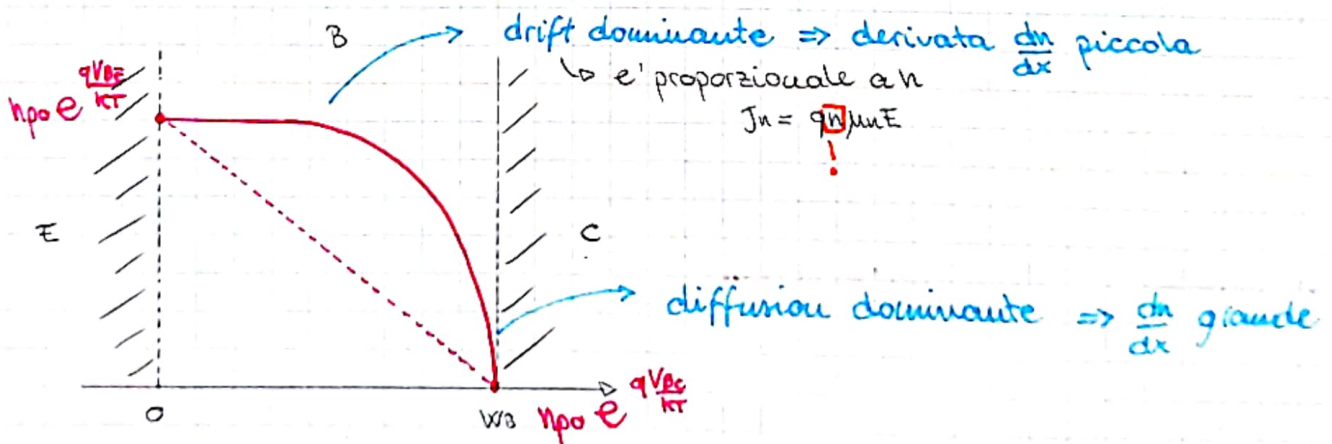 B
drift dominante => derivata dn/dx piccola
↳ e' proporzionale a n
Jn = qnμnE
!
npo e^(qVBE/KT)
E
C
diffusion dominante => dn/dx grande
0
WB
npo e^(qVBC/KT)